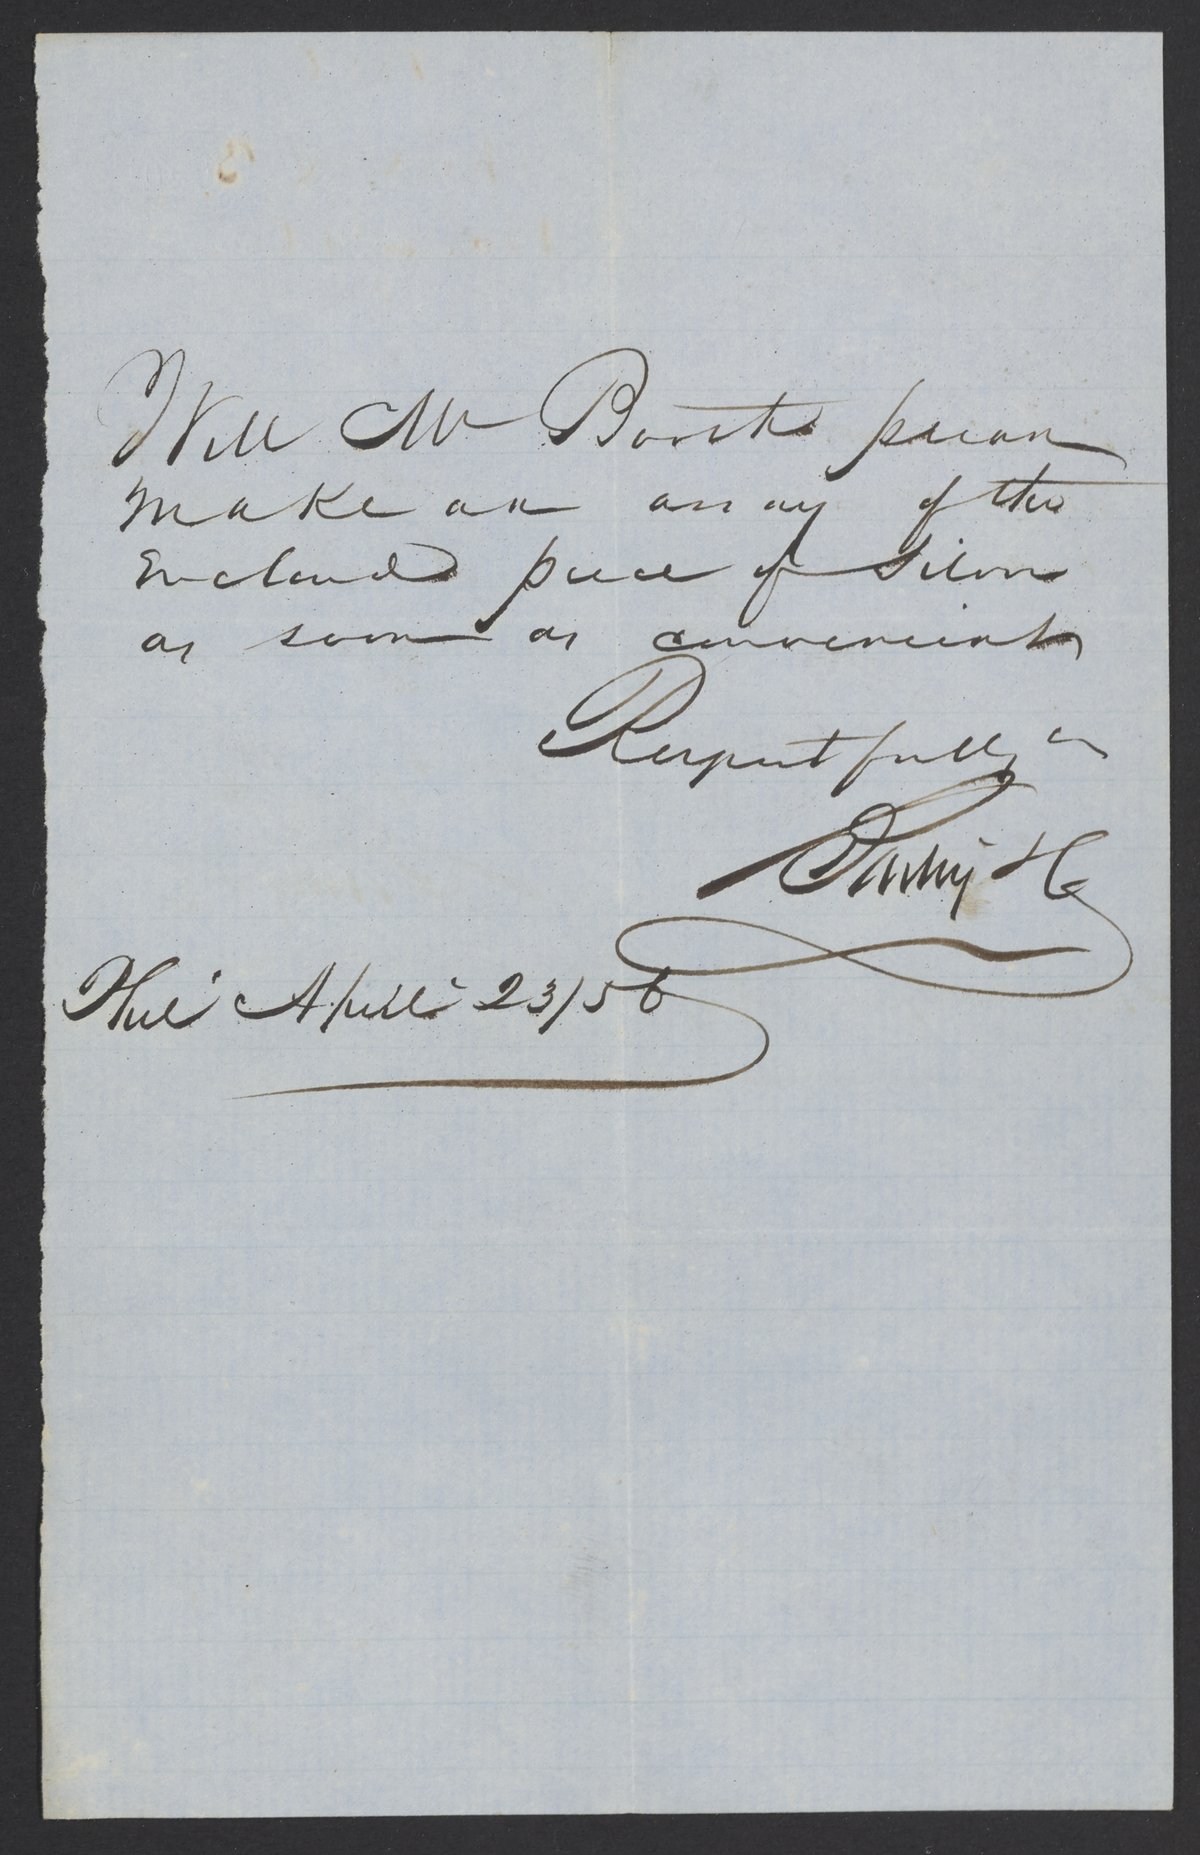 Will Mr Booth please
make an assay of the
Enclosed piece of Silver
as soon as convenient
Respectfully
Phil April 23/56